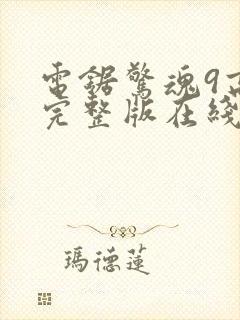 電鋸驚魂9高
完整版在綫
瑪德蓮